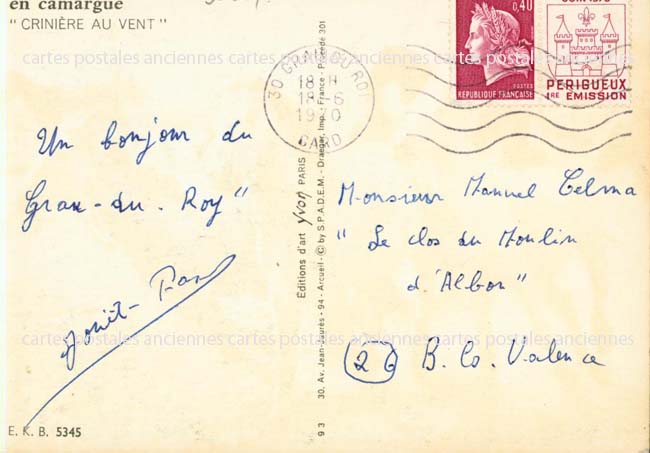 en camargue
"CRINIÈRE AU VENT"
0,40
POSTES
REPUBLIQUE FRANÇAISE
PERIGUEUX
1RE EMISSION
30 GRAU DU ROI
18 H
18-6
1970
GARD
Un bonjour du
Grau-du-Roy"
Monsieur Manuel Telma
"Le clos du Moulin
d'Albon"
(26) B. Co. Valence
Editions d'art yvon PARIS
30, Av. Jean-Jaurès - 94 - Arcueil - © by S.P.A.D.E.M. - Draeger, Imp. - France - Procédé 301
9 3
E. K. B. 5345
cartes postales anciennes cartes postales anciennes cartes postales anciennes
cartes postales anciennes cartes postales anciennes cartes postales anciennes